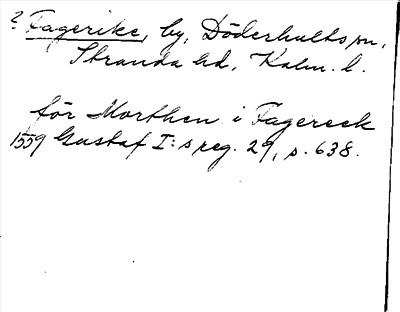 ? Fagerike, by, Döderhults sn,
Stranda hd, Kalm. l.
för Morthen i Fagereek
1559 Gustaf I:s reg. 29, s. 638.